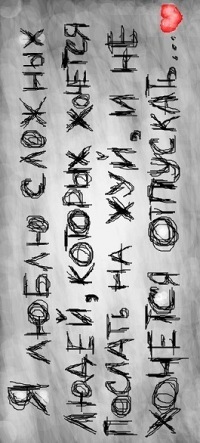 Я ЛЮБЛЮ СЛОЖНЫХ
ЛЮДЕЙ, КОТОРЫХ ХОЧЕТСЯ
ПОСЛАТЬ НА ХУЙ, И НЕ
ХОЧЕТСЯ ОТПУСКАТЬ...